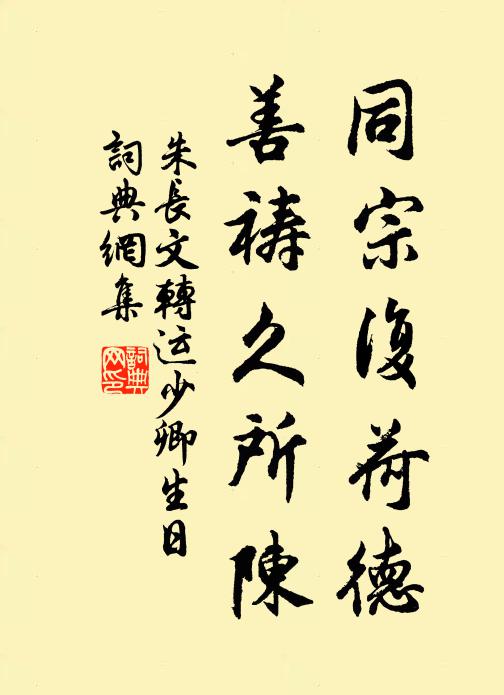 同宗復荷德
善祷久所陳
朱長文轉运少卿生日
詞典網集
詞典
网印